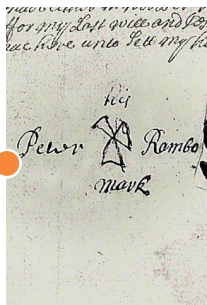 for my Last will and
have unto Sett my
his
Peter Rambo
mark